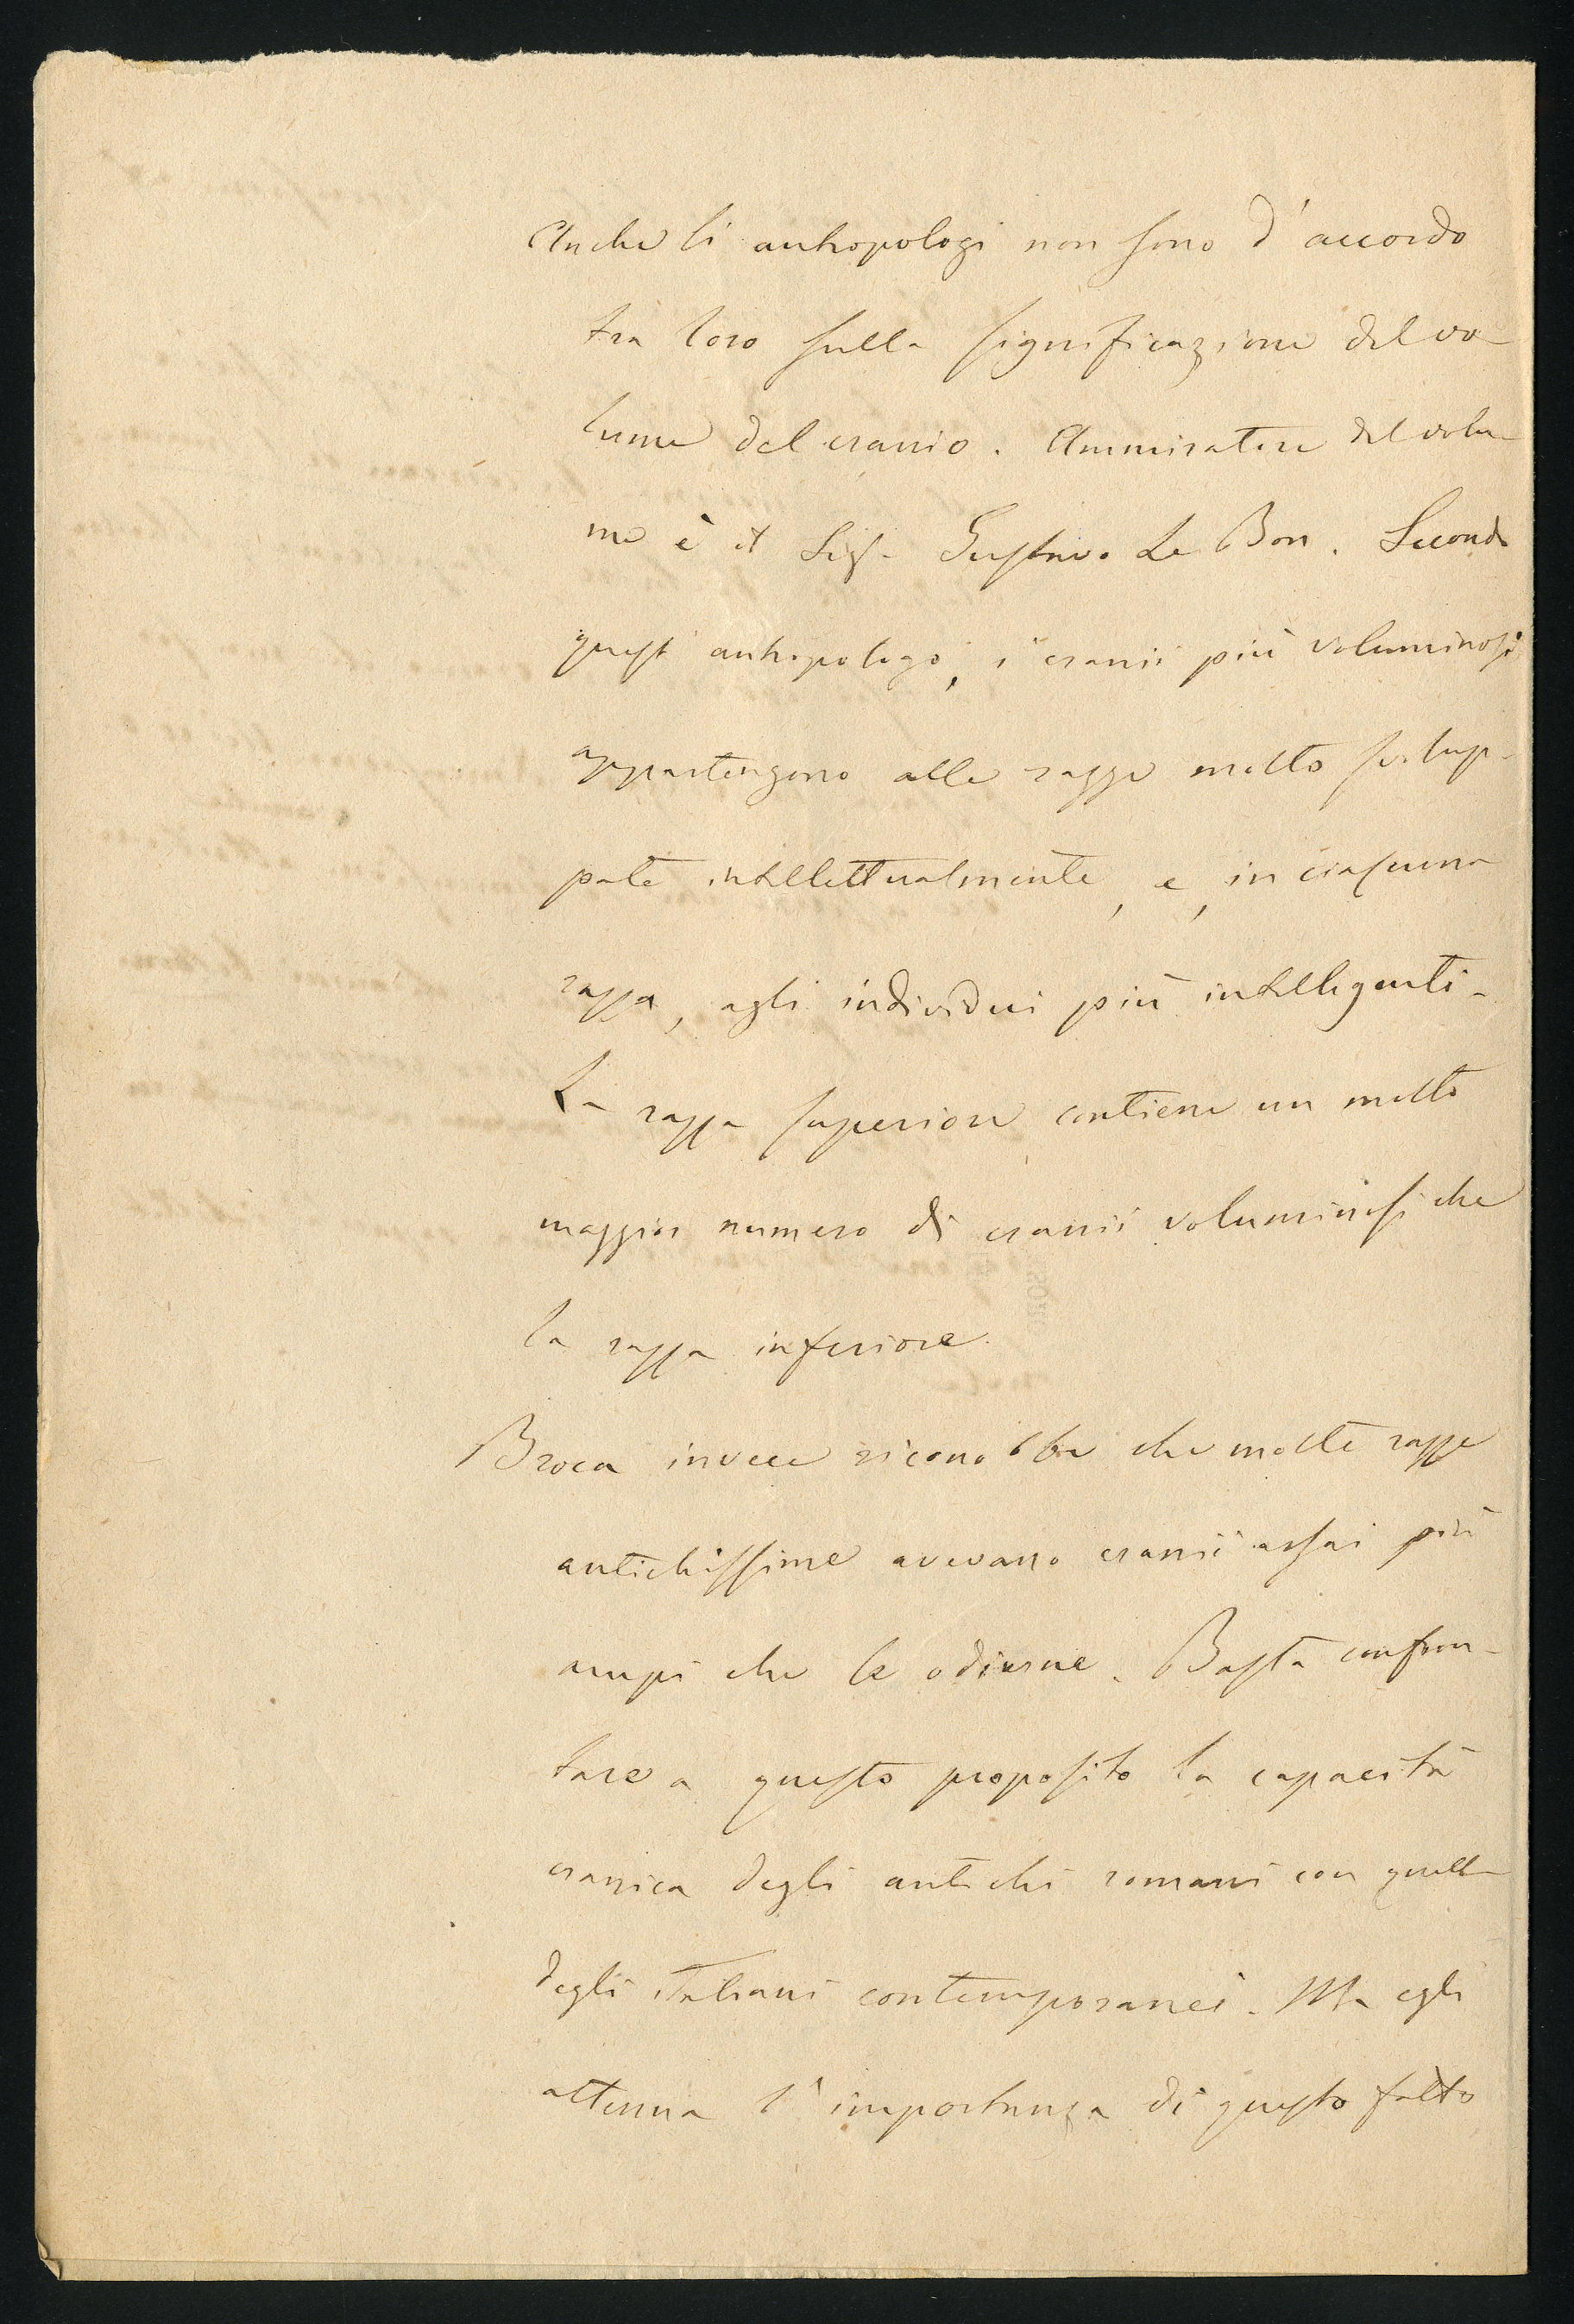 Anche li antropologi non sono d'accordo
tra loro sulla significazione del vo-
lume del cranio. Ammiratore del volu-
me è il Sigr Gustavo Le Bon. Secondo
quest' antropologo, i cranii più voluminosi
appartengono alle razze molto svilup-
pate intellettualmente, e, in ciascuna
razza, agli individui più intelligenti.
La razza superiore contiene un molto
maggior numero di cranii voluminosi che
la razza inferiore.
Broca invece riconobbe che molte razze
antichissime avevano cranii assai più
ampi che le odierne. Basta confron-
tare a questo proposito la capacità
cranica degli antichi romani con quella
degli Italiani contemporanei. Ma egli
attenua l'importanza di questo fatto